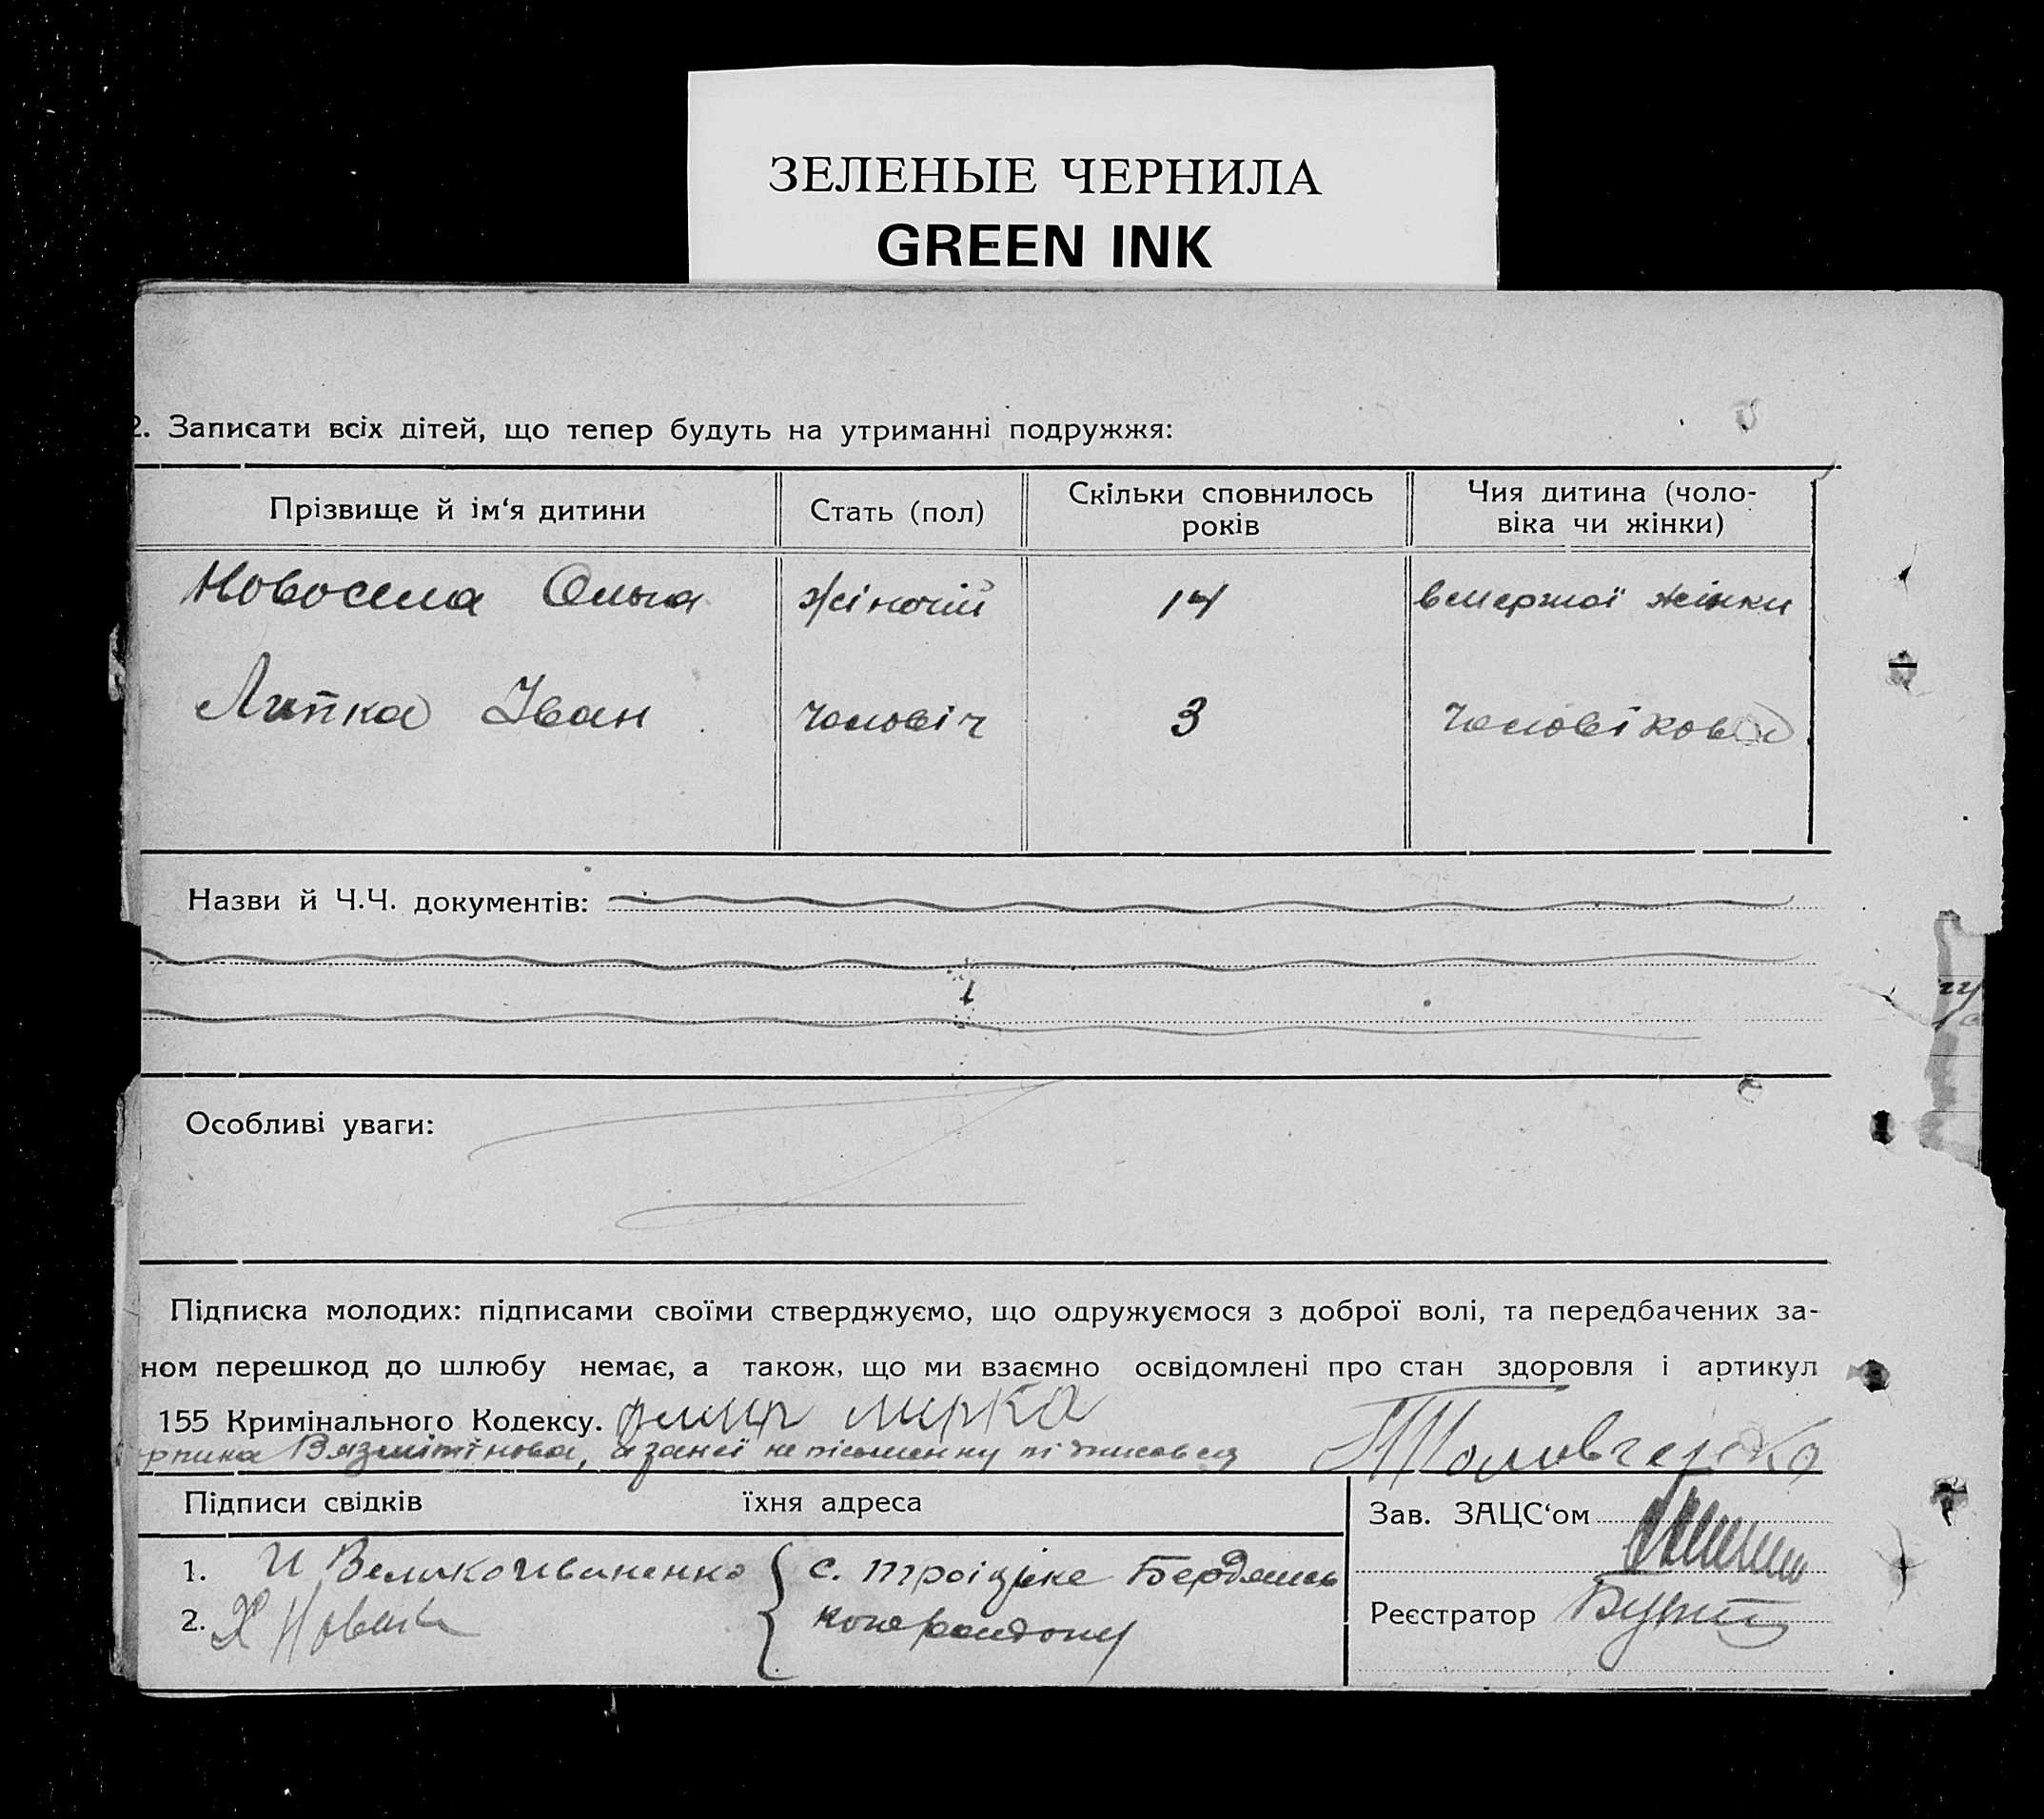 ЗЕЛЕНЫЕ ЧЕРНИЛА
GREEN INK
2. Записати всіх дітей, що тепер будуть на утриманні подружжя:
Прізвище й ім‘я дитини Стать (пол) Скільки сповнилось років Чия дитина (чоло-віка чи жінки)
Новосела Ольга жіночій 14 вмершої жінки
Липка Іван чоловіч 3 чоловікова
Назви й Ч.Ч. документів:
Особливі уваги:
Підписка молодих: підписами своїми стверджуємо, що одружуємося з доброї волі, та передбачених за-
ном перешкод до шлюбу немає, а також, що ми взаємно освідомлені про стан здоровля і артикул
155 Кримінального Кодексу.
рпина Вязмітінова, а за неї не письменну підписався
Підписи свідків їхня адреса
Зав. ЗАЦС‘ом
1. И Великоиваненко с. Троіцьке Бердянсь
2. Х Новак
кого району
Реєстратор